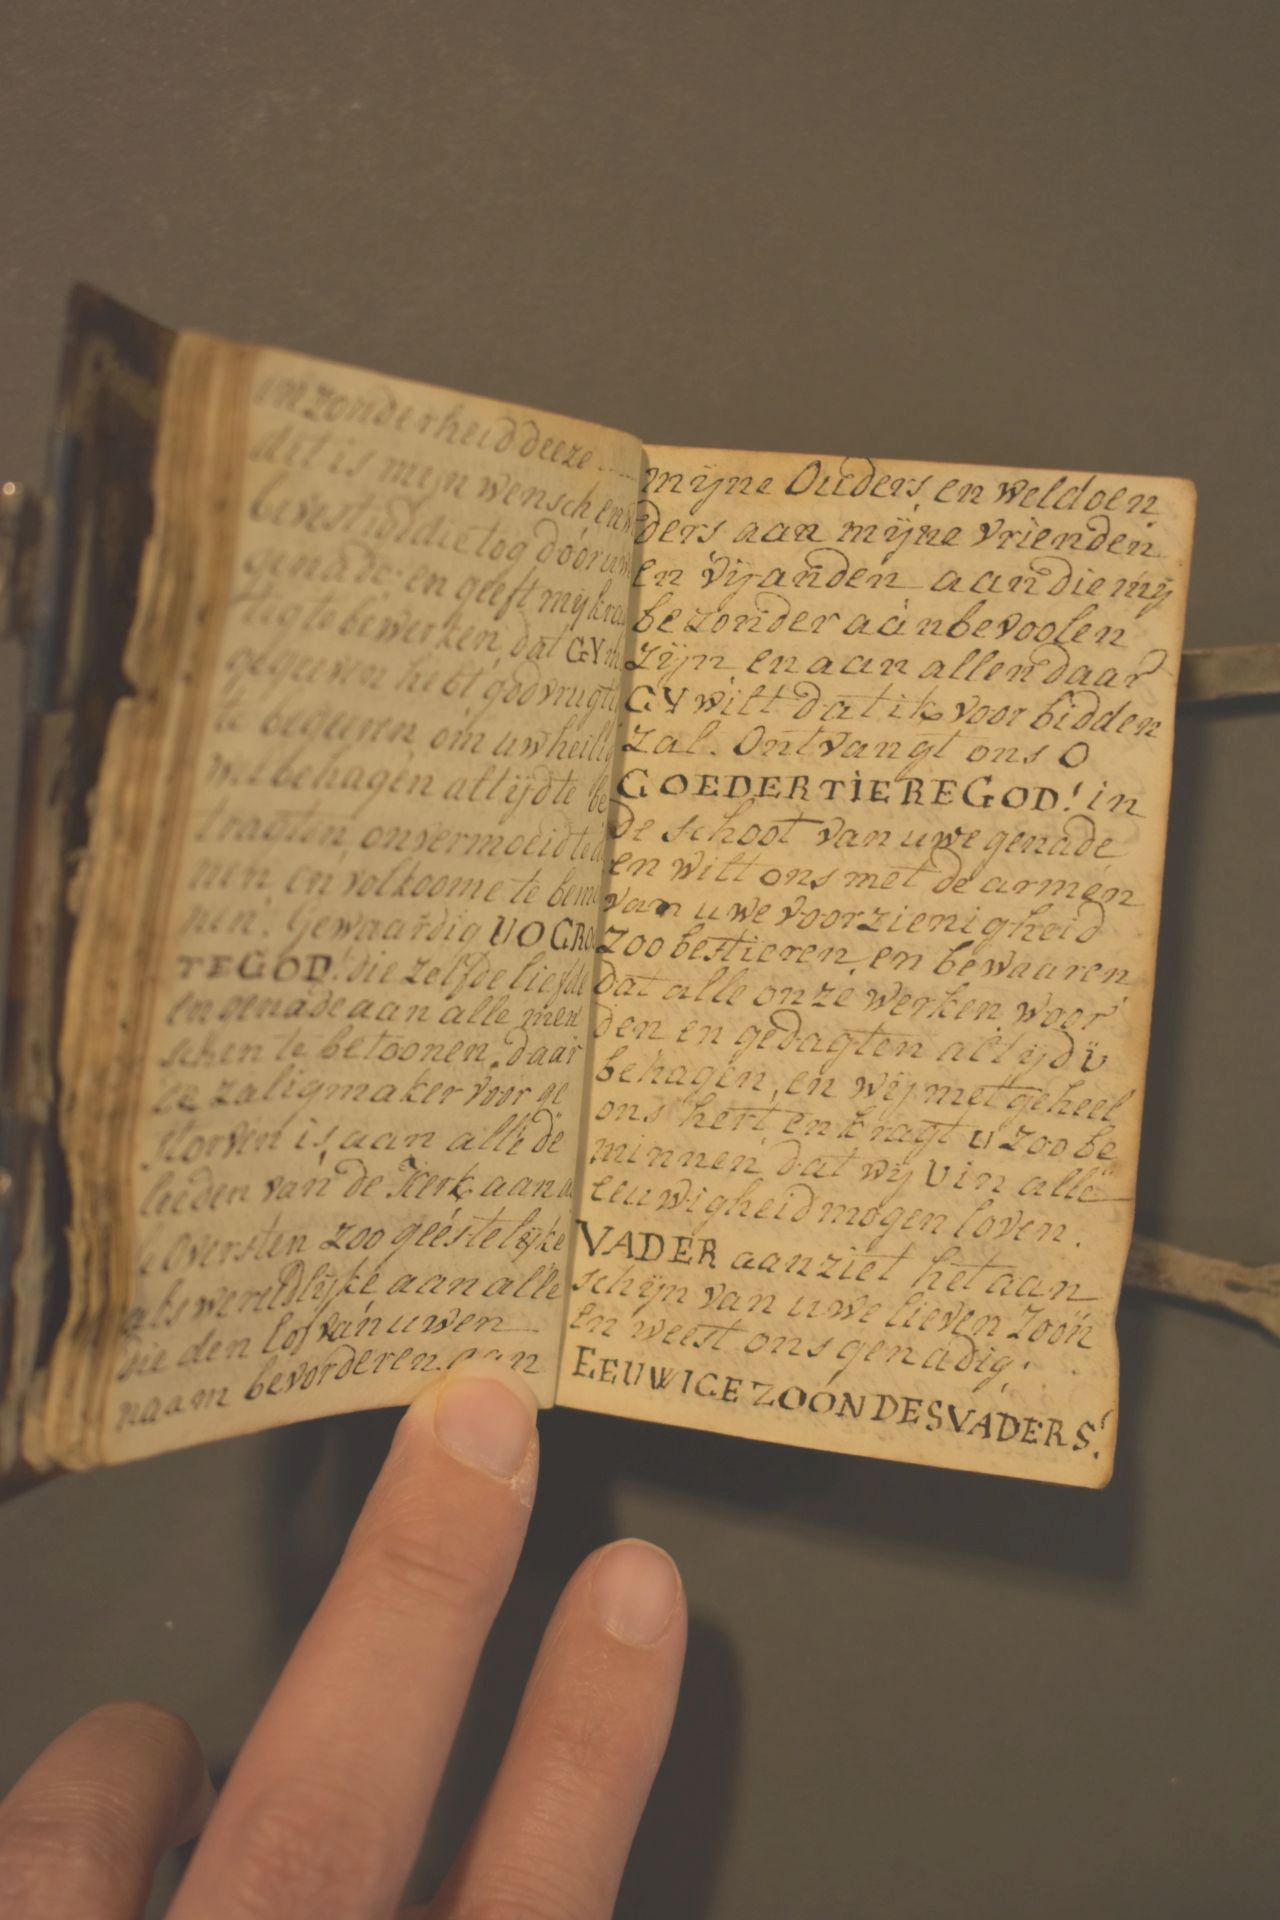 inzonderheid deeze
dit is mijn wensch en
tog door uw
genade: en geeft mij kra
tig te bewerken, dat GY m
gegeven hebt, godvrugti
te om uw heili
welbehagen altijd te be
onvermoeid te
nen en volkoome te bemi
nen. Gewaardig U O GRO
TE GOD! die zelfde liefde
en genade aan alle men
schen te betoonen, daar
de zaligmaker voor ge
storven is, aan alle de
leeden van de Kerk aan d
de Oversten zoo geéstelijke
als wereldlijke aan alle
die den lof van uwen
naam bevorderen aan
mijne Ouders, en weldoen
ders aan mijne vrienden
en vijanden aan die mij
bezonder aanbevoolen
zijn en aan allen daar
GY wilt dat ik voor bidden
zal. Ontvangt ons O
GOEDERTIERE GOD! in
de schoot van uwe genade
en wilt ons met de armen
van uwe voorzienigheid
zoo bestieren, en bewaaren
dat alle onze werken woor
den en gedagten altijd U
behagen, en wij met geheel
ons hert en kragt U zoo be
minnen, dat wij U in alle
eeuwigheid mogen loven.
VADER aanziet het aan
schijn van uwe lieven Zoon
en weest ons genadig;
EEUWIGE ZOON DES VADERS!